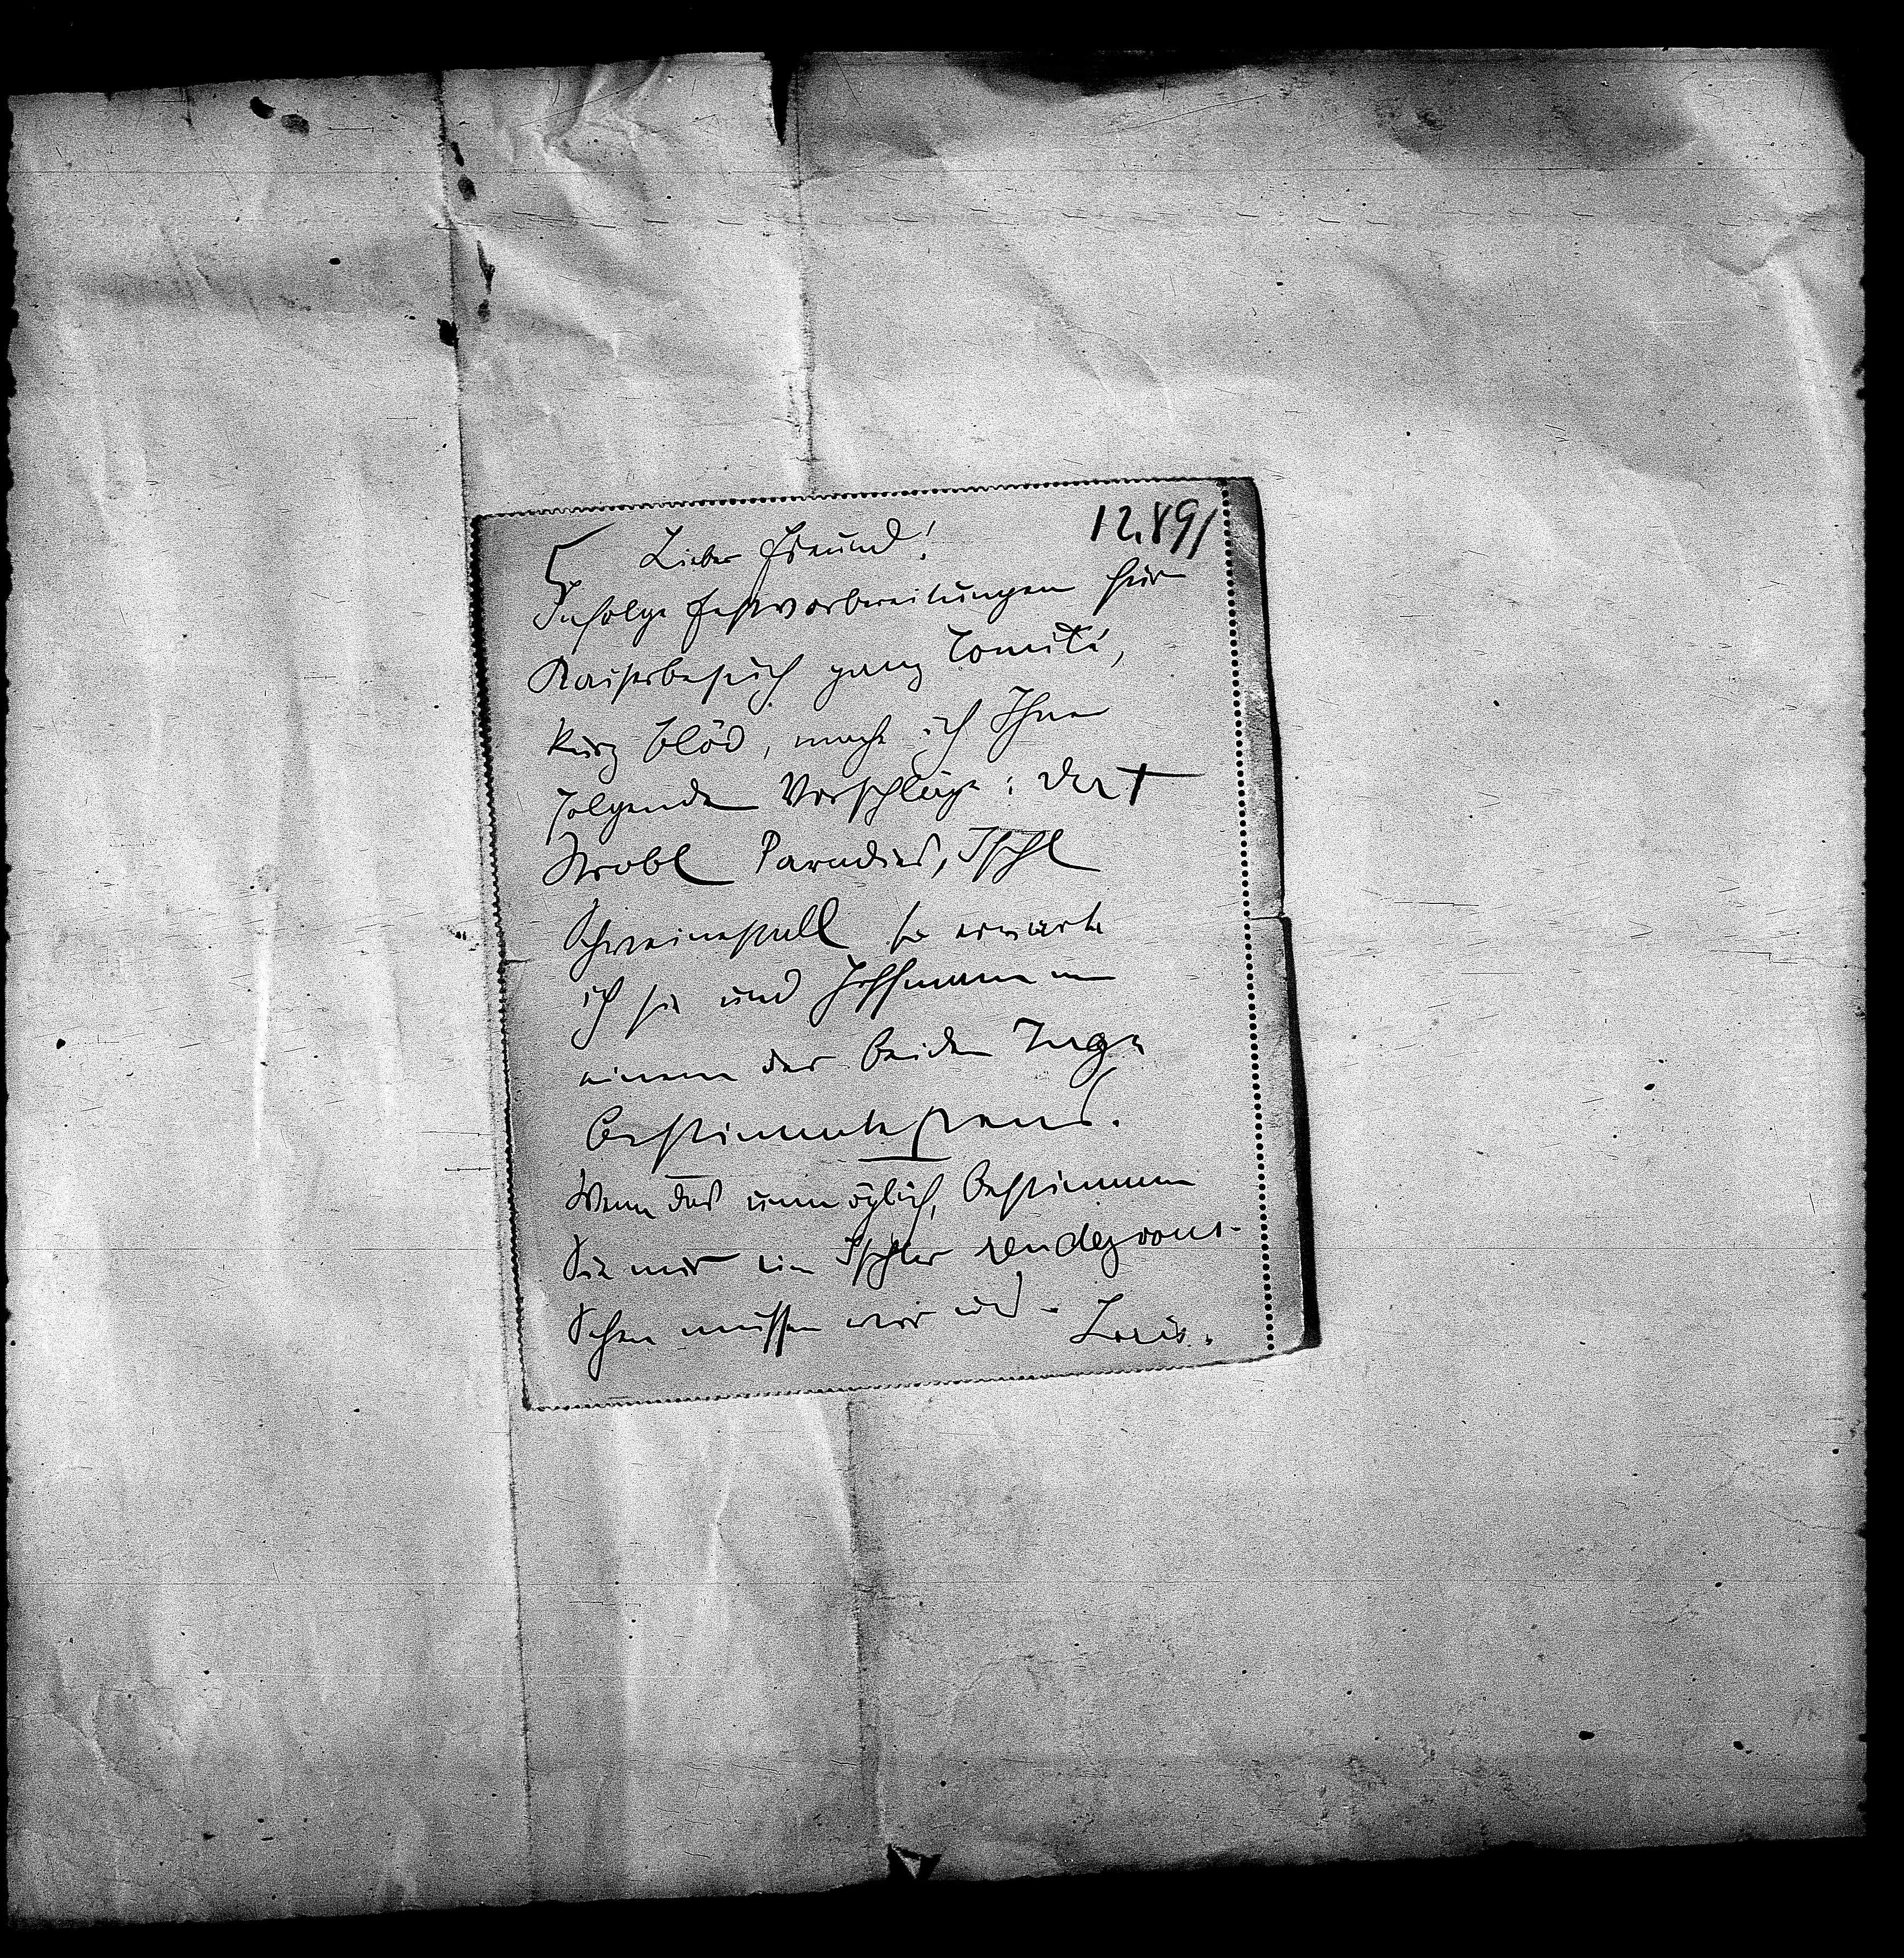 12.891
Lieber Freund!
Infolge Festvorbereitungen für
Kaiserbesuch ganz Comité,
kurz blöd, mache ich Ihnen
folgende Vorschläge: 
Strobl Paradies, Ischl
Schweinestall so erwarte
ich sie und Hoffmann
einem der beiden Tage
bestimmtestens.
Wenn das unmöglich, bestimmen
Sie mir ein Ischler rendezvous.
Sehen müssen wir uns.
Loris.